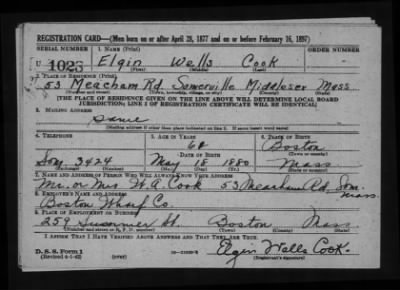 REGISTRATION CARD—(Men born on or after April 28, 1877 and on or before February 16, 1897)
SERIAL NUMBER 1. NAME (Print) ORDER NUMBER
U 1023 Elgin Wells Cook
(First) (Middle) (Last)
2. PLACE OF RESIDENCE (Print)
53 Meacham Rd Somerville Middlesex Mass
(Number and street) (Town, township, village, or city) (County) (State)
[THE PLACE OF RESIDENCE GIVEN ON THE LINE ABOVE WILL DETERMINE LOCAL BOARD
JURISDICTION; LINE 2 OF REGISTRATION CERTIFICATE WILL BE IDENTICAL]
3. MAILING ADDRESS
Same
(Mailing address if other than place indicated on line 2. If same insert word same)
4. TELEPHONE 5. AGE IN YEARS 6. PLACE OF BIRTH
Boston
DATE OF BIRTH (Town or county)
Som 3424 May 18 1880 Mass
(Exchange) (Number) (Mo.) (Day) (Yr.) (State or country)
7. NAME AND ADDRESS OF PERSON WHO WILL ALWAYS KNOW YOUR ADDRESS
Mr. or Mrs W.A. Cook 53 Meacham Rd, Som. Mass.
8. EMPLOYER'S NAME AND ADDRESS
Boston Wharf Co.
9. PLACE OF EMPLOYMENT OR BUSINESS
259 Summer St. Boston Mass.
(Number and street or R. F. D. number) (Town) (County) (State)
I AFFIRM THAT I HAVE VERIFIED ABOVE ANSWERS AND THAT THEY ARE TRUE.
D. S. S. Form 1
(Revised 4-1-42) Elgin Wells Cook.
(Registrant's signature)